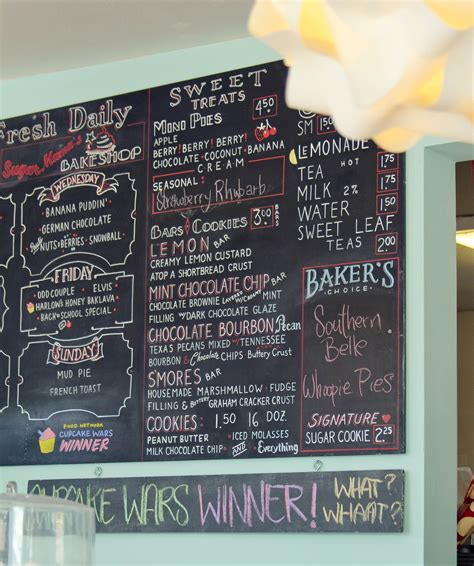 Fresh Daily
Sugar Mama's
BAKESHOP
WEDNESDAY
BANANA PUDDIN
GERMAN CHOCOLATE
NUTS&BERRIES · SNOWBALL
FRIDAY
ODD COUPLE · ELVIS
HARLOWS HONEY BAKLAVA
BACK-SCHOOL SPECIAL
SUNDAY
MUD PIE
FRENCH TOAST
FOOD NETWORK
CUPCAKE WARS
WINNER
SWEET
TREATS
MINI PIES 4.50
APPLE
BERRY! BERRY! BERRY!
CHOCOLATE · COCONUT · BANANA
CREAM
SEASONAL:
Strawberry Rhubarb
BARS & COOKIES 3.00
LEMON BAR
CREAMY LEMON CUSTARD
ATOP A SHORTBREAD CRUST
MINT CHOCOLATE CHIP BAR
CHOCOLATE BROWNIE LAYERED W/ CREAMY MINT
FILLING W/ DARK CHOCOLATE GLAZE
CHOCOLATE BOURBON Pecan
TEXAS PECANS MIXED W/ TENNESSEE
BOURBON & Chocolate CHIPS Buttery Crust
SMORES BAR
HOUSEMADE MARSHMALLOW · FUDGE
FILLING & BUTTERY GRAHAM CRACKER CRUST
COOKIES: 1.50 16 DOZ
PEANUT BUTTER · ICED MOLASSES
MILK CHOCOLATE CHIP AND · Everything
SM
LEMONADE 1.75
TEA HOT 1.50
MILK 2% 1.75
WATER 1.50
SWEET LEAF
TEAS 2.00
BAKER'S
CHOICE
Southern
Belle
Whoopie Pies
SIGNATURE
SUGAR COOKIE 2.25
CUPCAKE WARS WINNER! WHAT?
WHAAT?